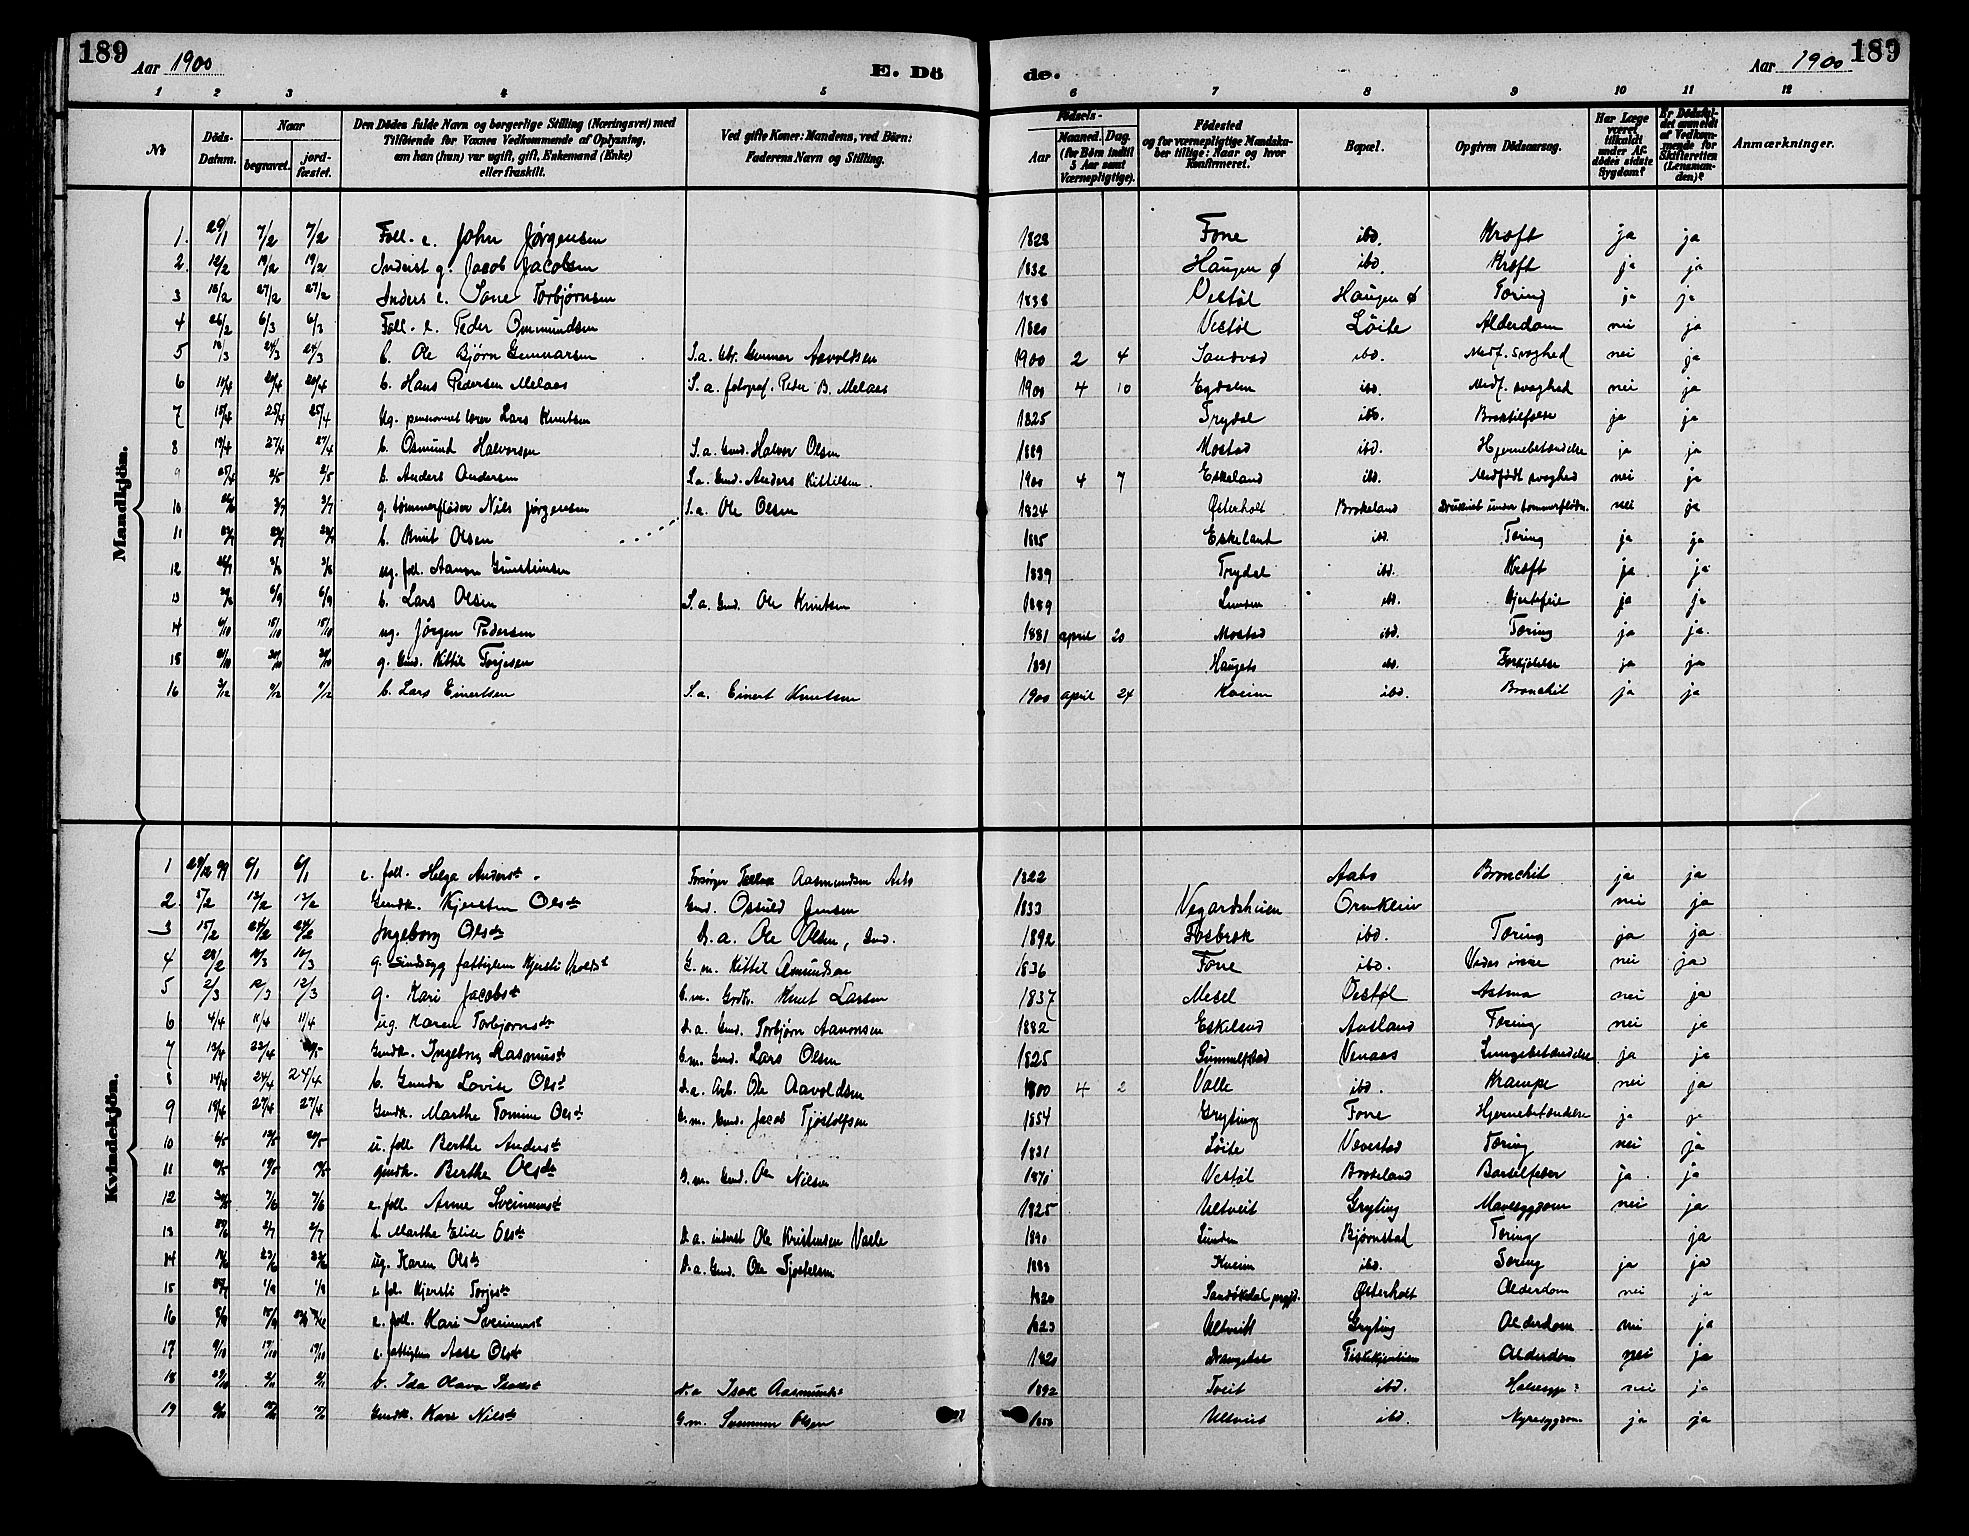 189 Aar 1900 E. Dö de. Aar 1900 189
1 2 3 4 5 6 7 8 9 10 11 12
No Döds-Datum. Naar begravet. jord-fæstet. Den Dödes fulde Navn og borgerlige Stilling (Næringsvei) med Tilföiende for Voxnes Vedkommende af Oplysning, om han (hun) var ugift, gift, Enkemand (Enke) eller fraskilt. Ved gifte Koner: Mandens, ved Börn: Faderens Navn og Stilling. Födsels- Aar Maaned. Dag. (for Börn indtil 5 Aar samt Værnepligtige). Födested og for værnepligtige Mandskaber tillige: Naar og hvor Konfirmeret. Bopæl. Opgiven Dödsaarsag. Har Læge været tilkaldt under Afdödes sidste Sygdom? Er Dödsfaldet anmeldt af Vedkommende for Skifteretten (Lensmanden)? Anmærkninger.
Mandkjön.
1. 29/1 7/2 7/2 Foll. e. John Jørgensen 1828 Fone ibd. Kræft ja ja
2. 12/2 19/2 19/2 Inderst g. Jacob Jacobsen 1832 Haugen ø ibd. Kræft ja ja
3 18/2 27/2 27/2 Inders e. Tone Torbjørnsen 1838 Vestøl Haugen ø Tæring ja ja
4 26/2 6/3 6/3 Foll. e. Peder Ommundsen 1820 Vestøl Löite Alderdom nei ja
5 18/3 24/3 24/3 b. Ole Bjørn Gunnarsen S.a. Gbr. Gunnar Aavoldsen 1900 2 4 Sandvad ibd. Medf. svaghed nei ja
6 11/4 20/4 20/4 b. Hans Pedersen Melaas S.a. fotograf. Peder B. Melaas 1900 4 10 Egdalen ibd. Medf. svaghed nei ja
7 15/4 25/4 25/4 Ug. pensioneret lærer Lars Knutsen 1825 Trydal ibd. ja ja
8 19/4 27/4 27/4 b. Osmund Halvorsen S.a. Gmd. Halvor Olsen 1889 Mostad ibd. Hjernebetændelse ja ja
9 25/4 2/5 2/5 b. Anders Andersen S.a. Gmd. Anders Kittilsen. 1900 4 7 Eskeland ibd. Medfødt svaghed nei ja
10 3/7 3/7 g. tømmerfløder Nils Jørgensen S.a. Ole Olsen 1824 Østerholt Brokeland Druknet under tømmerflødn. nei ja
11 b. Knut Olsen 1885 Eskeland ibd. Tæring ja ja
12 ug. foll. Aanon Gunsteinsen 1839 Trydal ibd. Kræft ja ja
13 6/9 6/9 b. Lars Olsen S.a. Gmd. Ole Knutsen 1889 Lunden ibd. Hjertefeil ja ja
14 6/10 15/10 15/10 ug. Jørgen Pedersen 1881 april 20 Mostad ibd. Tæring ja ja.
15 g. Gmd. Kittil Torjesen 1831 Haugets ibd. Forkjölelse ja ja
16 3/12 b. Lars Einertsen S.a. Einert Knutsen 1900 april 24 Kveim ibd. Bronchit ja ja
Kvindekjön.
1 29/12 99 6/1 6/1 e. foll. Helga Andersdt. Forsørger Aasmundsen Aabo 1822 Aabo Bronchit ja ja
2. 5/2 13/2 13/2 Gmdk. Kjersten Olsdt Gmd. Ossuld Jensen 1833 Vegardsheien Ornkleiv nei ja
3 15/2 24/2 24/2 Ingeborg Olsdt D.a. Ole Olsen, Gmd. 1892 Fosbræk ibd. Tæring ja ja
4 28/2 10/3 10/3 g. sindssyg fattiglem Kjersti G.m. Kittil Asmundsen 1836 Fone ibd. Vides ikke nei ja
5 2/3 12/3 12/3 g. Kari Jacobsdt G.m. Gmdbr. Knut Larsen 1837 Mesel Vestøl Astma nei ja
6 4/4 11/4 11/4 ug. Karen Torbjørnsdt D.a. Gmd. Torbjørn Aanonsen 1882 Eskeland Ausland Tæring nei ja
7 13/4 23/4 Gmdk. Ingeborg Rasmusdt G.m. Gmd. Lars Olsen 1825 Gummelstad Venaas Lungebetændelse ja ja
8 14/4 24/4 24/4 b. Gunda Lovise Olsdt D.a. Arb. Ole Aavoldsen 1900 4 2 Valle ibd. Krampe nei ja
9 18/4 27/4 27/4 Gmdk. Marthe Tomine Olsdt G.m. Gmd. Jacob Tjøstolfsen 1854 Gryting Fone Hjernebetændelse ja ja
10 6/5 u. foll. Berthe Andersdt 1831 Löite Vævestad Tæring nei ja
11 19/5 19/5 gmdk. Berthe Olsdt G.m. Gmd. Ole Nilsen 1870 Vestøl Brokeland Barselfeber ja ja
12 7/6 7/6 e. foll. Anne Sveinunsdt 1825 Ultveit Gryting Mavesygdom nei ja
13 2/7 2/7 b. Marthe Elise Olsdt D.a. inderst Ole Kristensen Valle 1890 Lunden Bjørnstad Tæring ja
14 23/6 23/6 ug. Karen Olsdt D.a. Gmd. Ole Tjøstelsen 1888 Kveim ibd. Tæring ja ja
15 1/8 1/8 e. fol. Kjersti Torjesdt 1820 Sandøkedal prgjd. Østerholt Alderdom nei ja
16 8/9 e. foll. Kari Sveinunsdt 1823 Ultveit Gryting Alderdom nei ja
17 9/10 17/10 17/10 e. fattiglem Asse Olsdt 1820 Drangedal Alderdom nei ja
18 29/10 b. Ida Olava Isaksdt D.a Isak Aasmundsen 1892 Tveit ibd. nei ja
19 Gmdk. Kari Nilsdt G.m. Sveinun Olsen 1850 Ultveit ibd. Nyresygdom ja ja